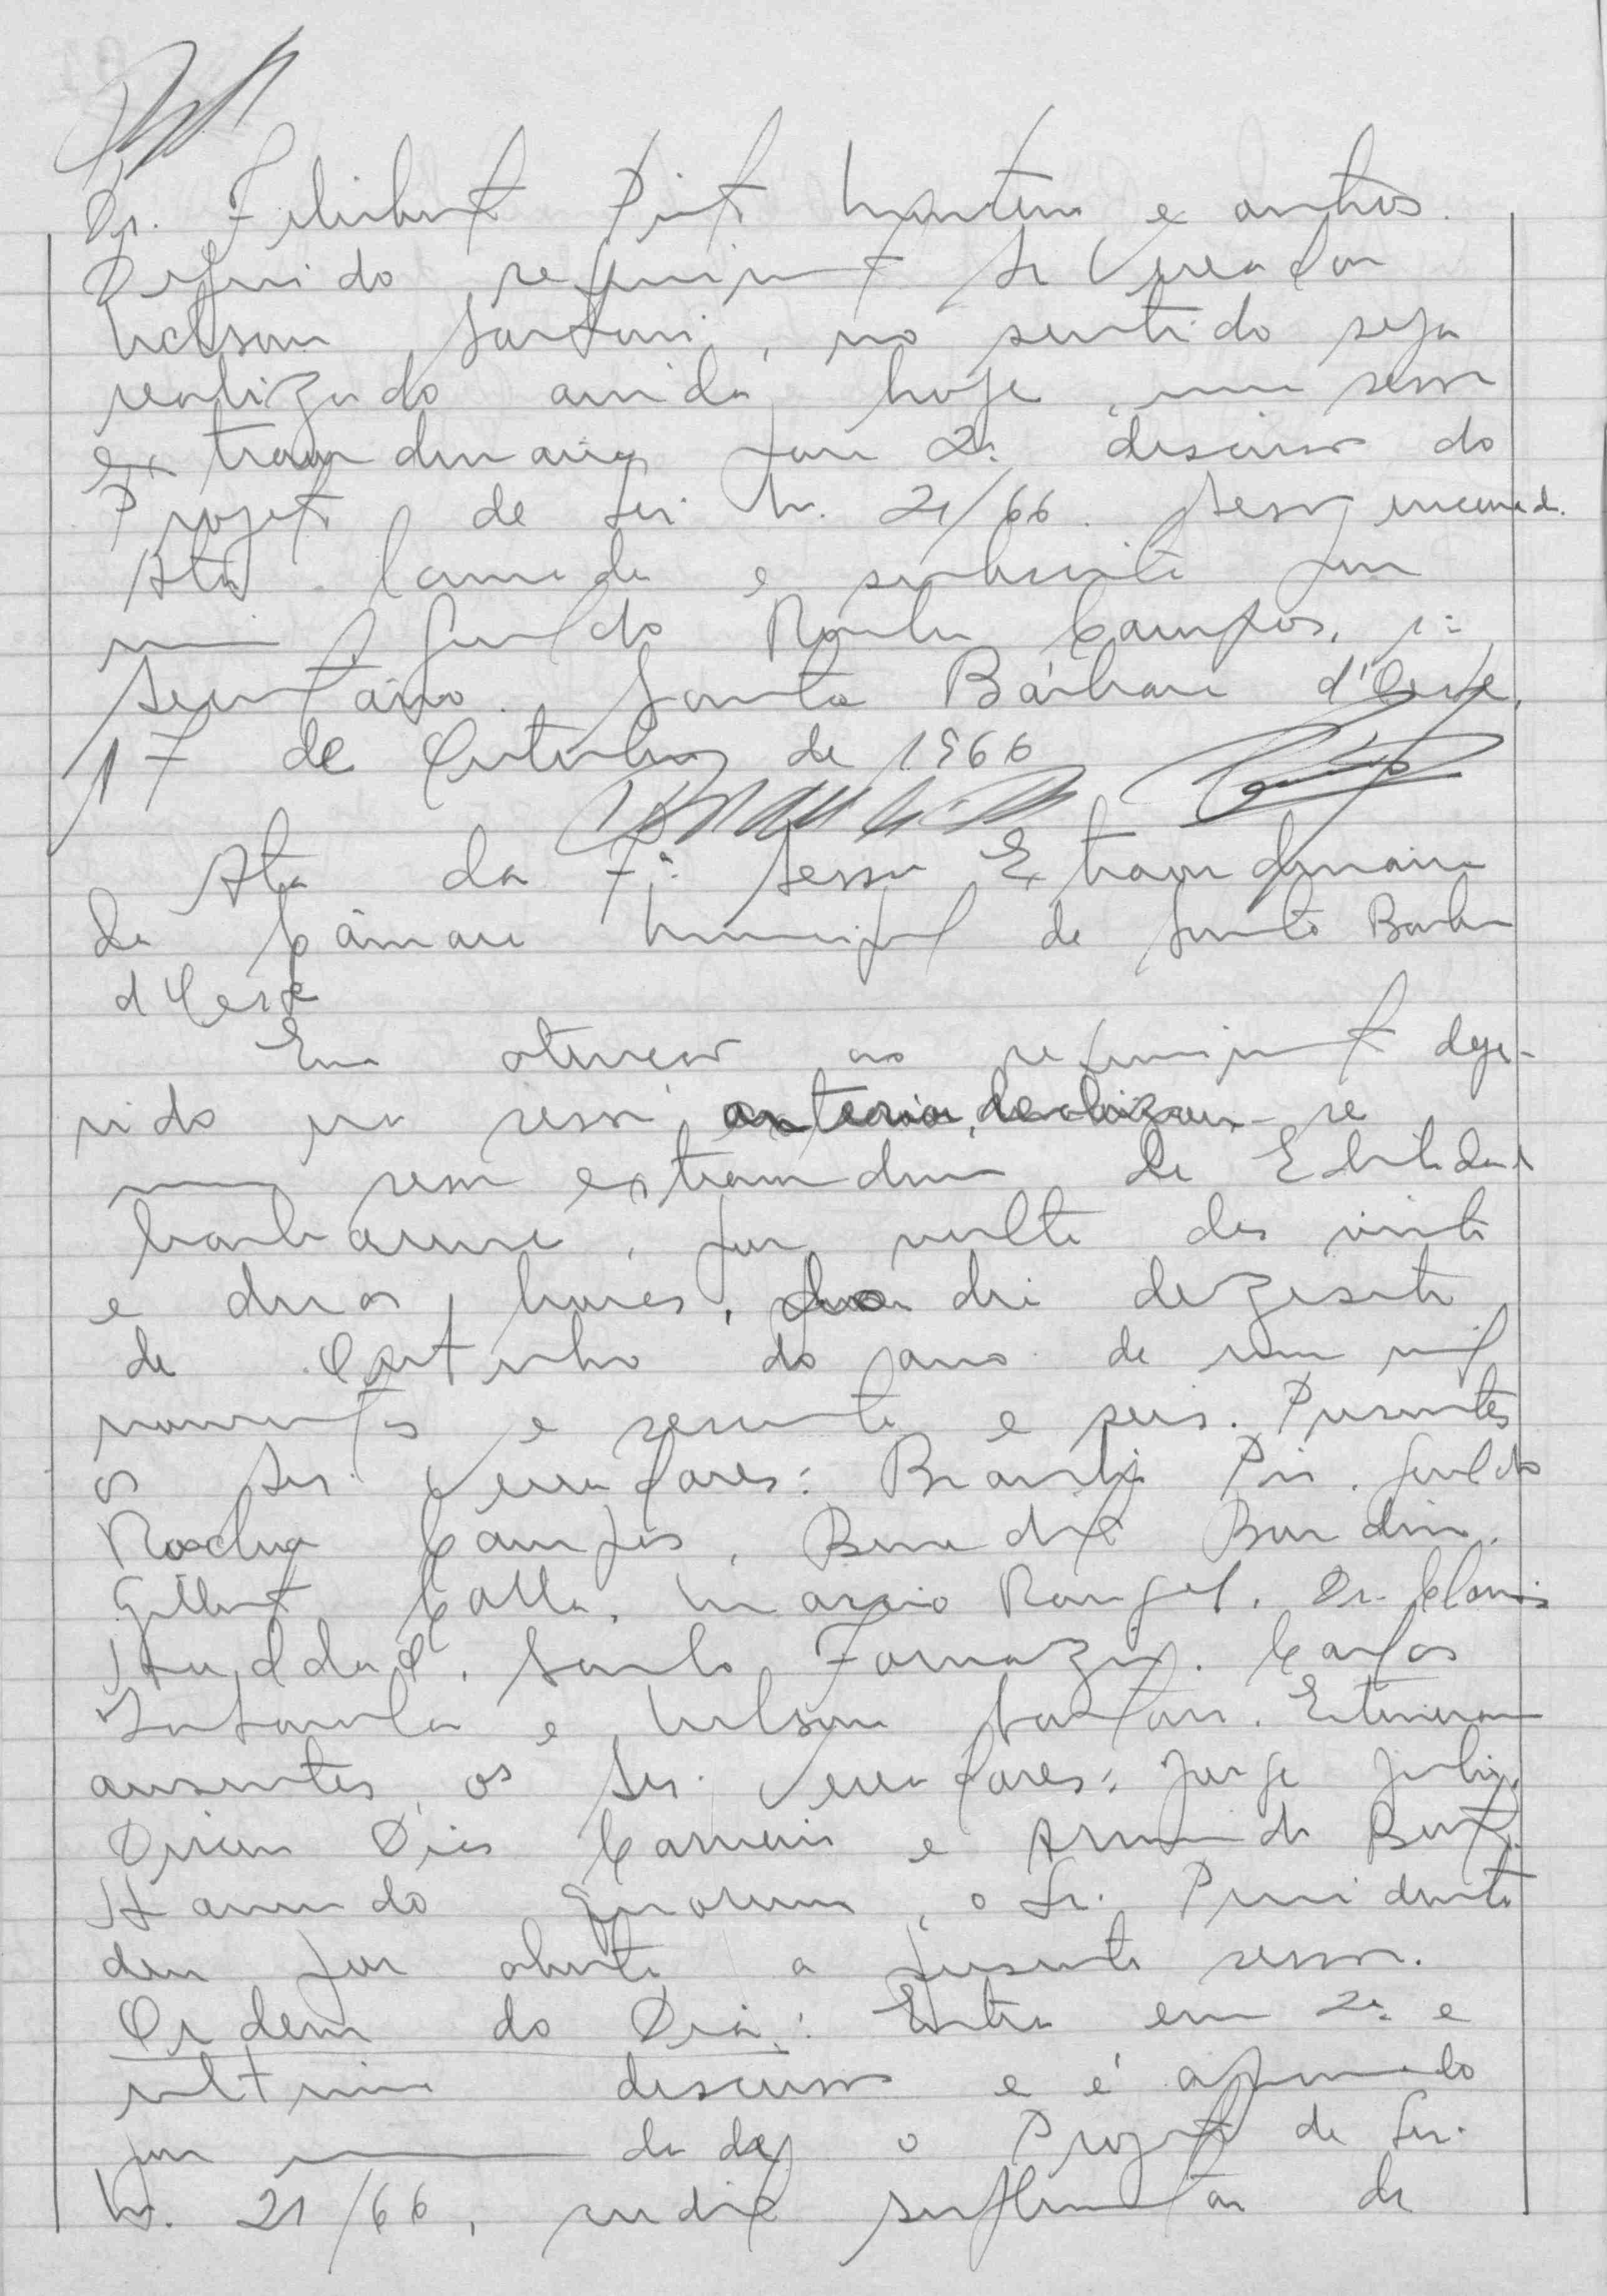 Dr. Felisberto Pinto Monteiro e outros.
Deferido requerimento do Sr Vereador
Nelson Sartori, no sentido seja
realizado ainda hoje, uma sessão
extraordinaria para 2ª discussão do
Projeto de Lei N. 21/66. Sessão encerrada.
Ata lavrada e subscrita por
mim Geraldo Rocha Campos, 1º
Secretário. Santa Bárbara d'Oeste,
17 de Outubro de 1966
Ata da 7ª Sessão Extraordinária
da Câmara Municipal de Santa Barbara
d'Oeste
Em atenção ao requerimento defe-
rido na sessão anterior, realizou-se
uma sessão extraordinaria da Edilidade
barbarense, por volta das vinte
e duas horas, do dia dezesete
de Outubro do ano de um mil
novecentos e sessenta e seis. Presentes
os Srs. Vereadores: Braulio Pio, Geraldo
Rocha Campos, Benedito Bardin,
Gilberto Calla, Marcio Rangel, Dr. Clovis
Haddad, Santo Fornazin, Carlos
e Nelson Sartori. Estiveram
ausentes os Srs. Vereadores: Jorge Julio,
Dirceu Dias Carneiro e Armando
Havendo quorum, o Sr. Presidente
deu por aberta a presente sessão.
Ordem do Dia: Entra em 2ª e
ultima discussão e é aprovado
por unanimidade o Projeto de Lei
N. 21/66, credito suplementar de